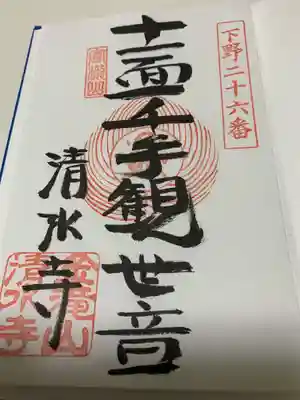 下野二十六番
十一面千手観世音
清水寺